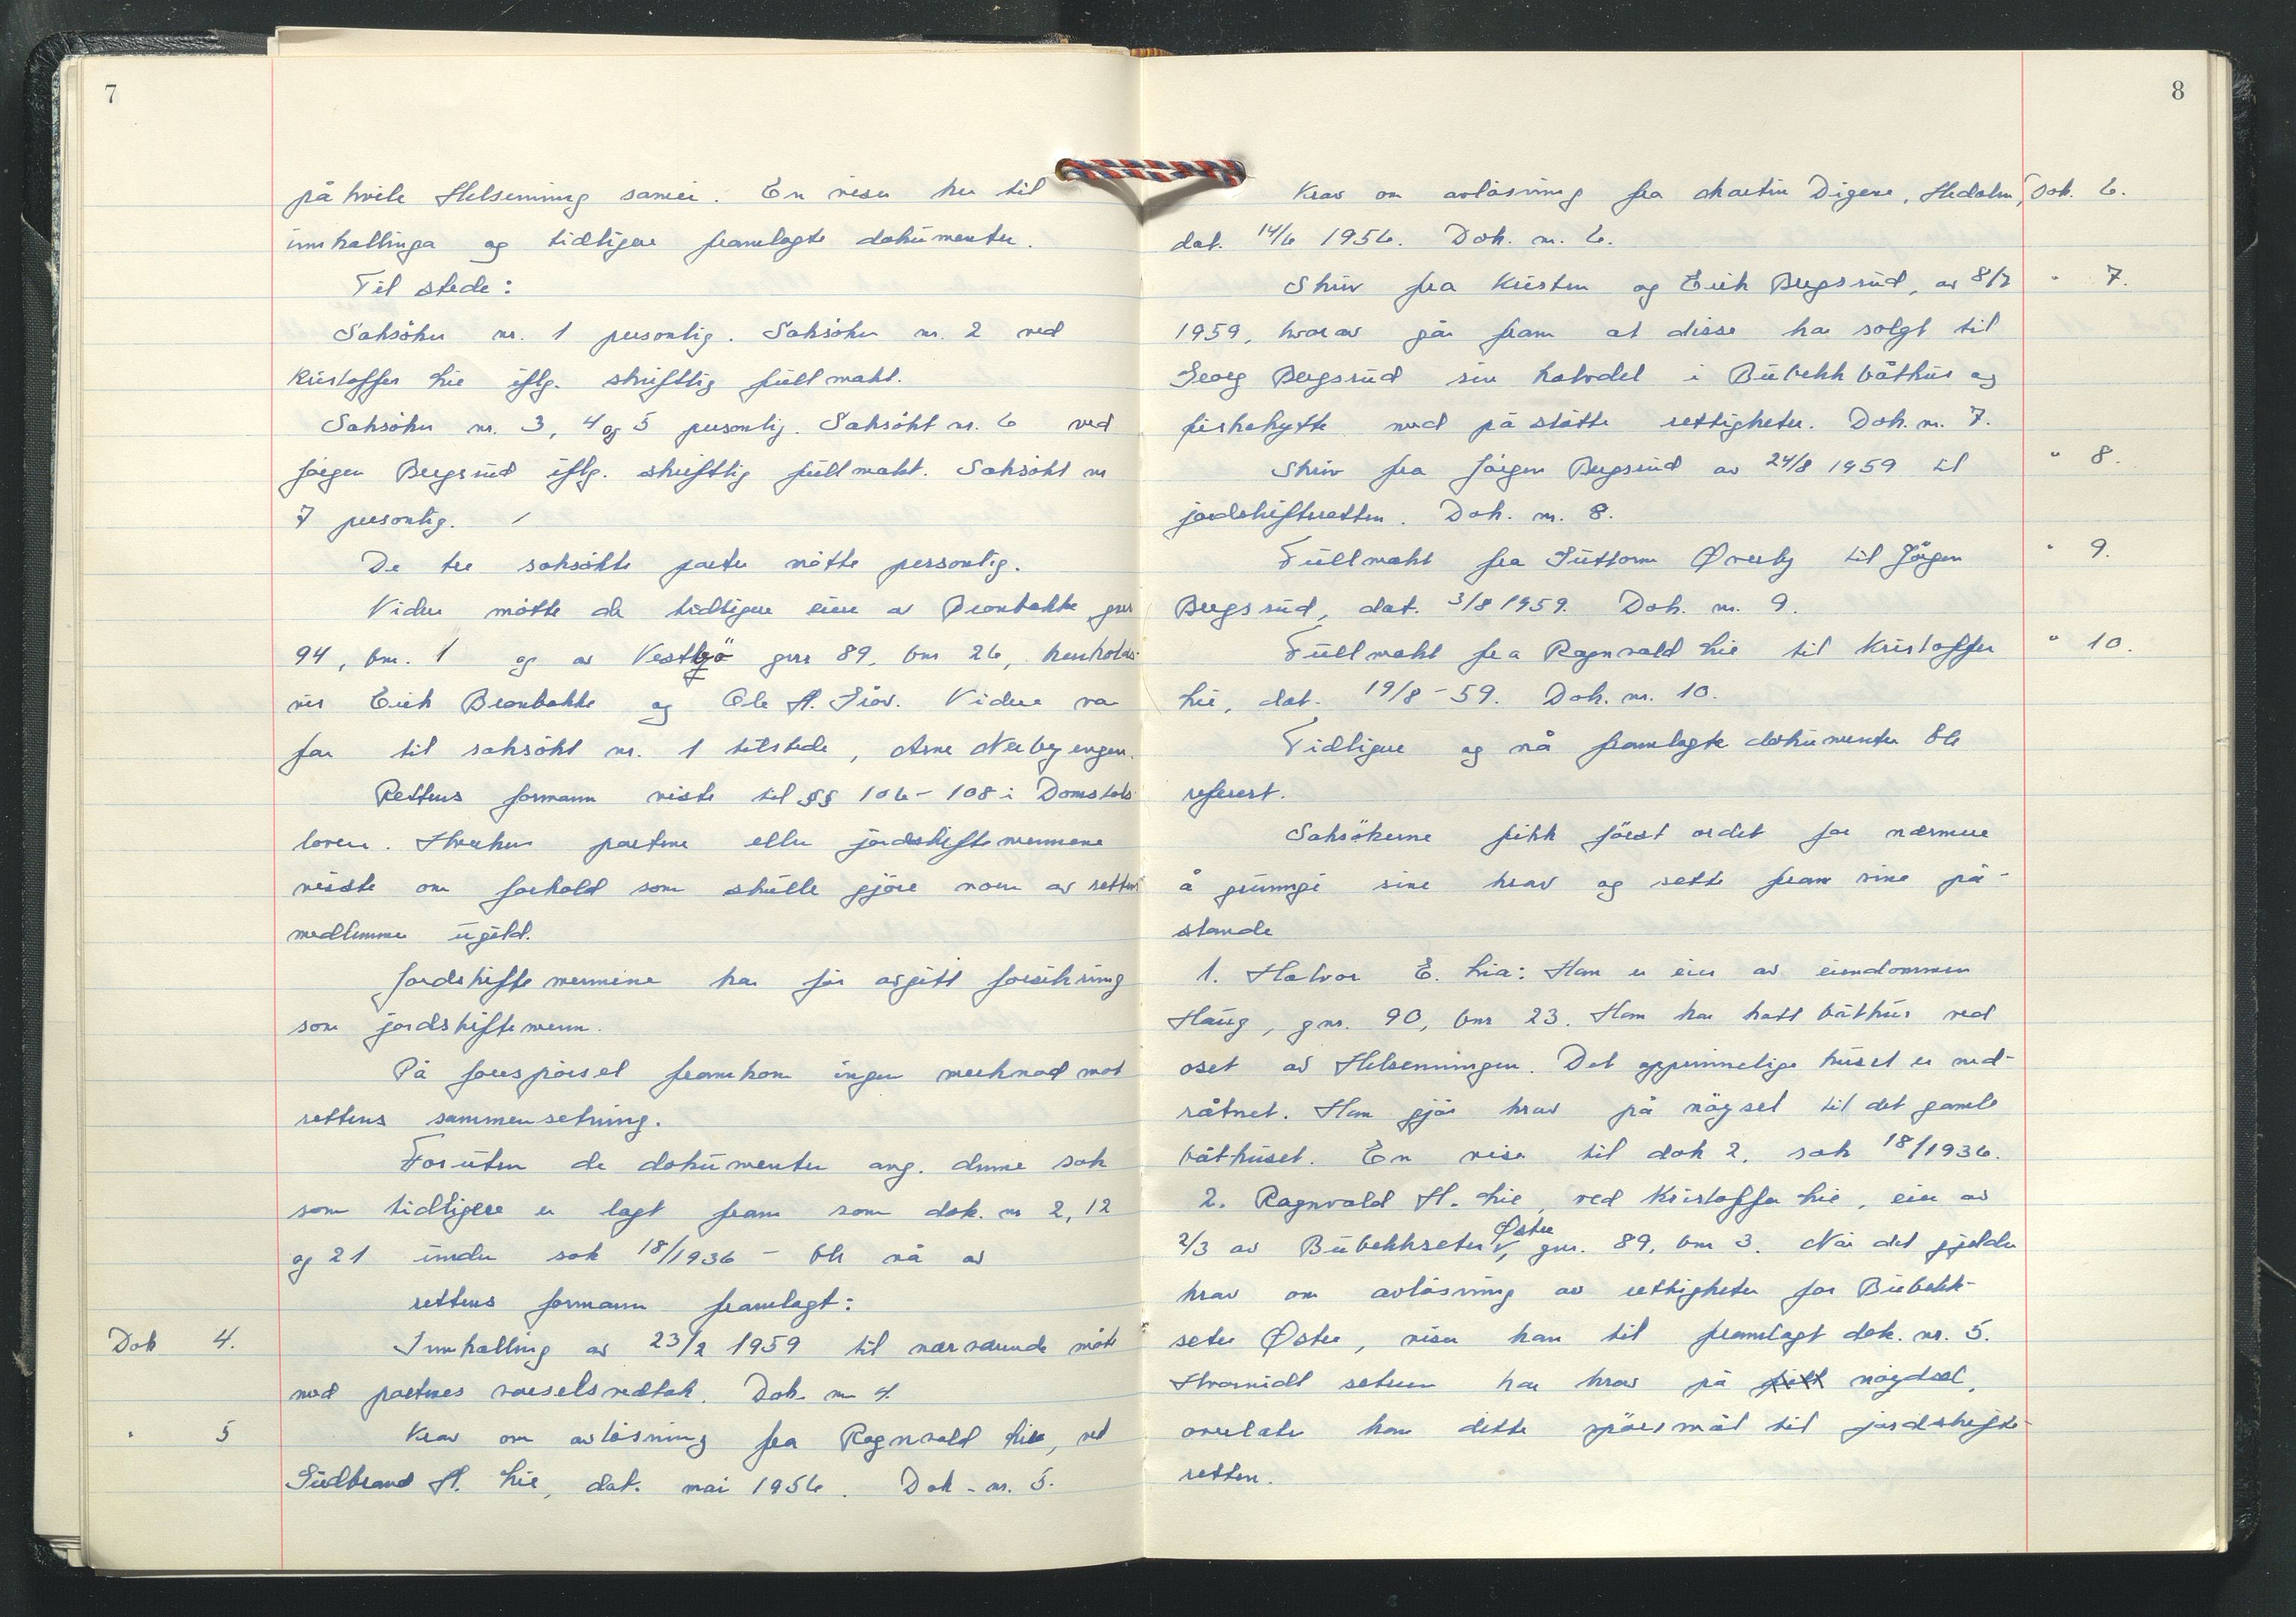 7
på hvile Helsenning sameie. En viser her til
innkallinga og tidligere framlagte dokumenter.
Til stede:
Saksöker nr. 1 personlig. Saksöker nr. 2 ved
Kristoffer Lie iflg. skriftlig fullmakt.
Saksöker nr. 3, 4 og 5 personlig. Saksökt nr. 6 ved
Jörgen Bergsrud iflg. skriftlig fullmakt. Saksökt nr
7 personlig.
De tre saksökte parter mötte personlig.
Videre mötte de tidligere eiere av Bronbakke gnr
94, bnr. 1 og av Vestbö gnr 89, bnr 26, henholds-
vis Erik Bronbakke og Ole H. Fröv. Videre var
far til saksökt nr. 1 tilstede, Arne Nerbyengen.
Rettens formann viste til §§ 106-108 i Domstols
loven. Hverken partene eller jordskiftemennene
visste om forhold som skulle gjöre noen av rettens
medlemmer ugild.
Jordskiftemennene har för avgitt forsikring
som jordskiftemenn.
På forespörsel framkom ingen merknad mot
rettens sammensetning.
Foruten de dokumenter ang. denne sak
som tidligere er lagt fram som dok. nr 2, 12
og 21 under sak 18/1936 - ble nå av
rettens formann framlagt:
Dok 4. Innkalling av 23/2 1959 til nærværende möte
med partenes varselsvedtak. Dok nr 4.
" 5 Krav om avlösning fra Ragnvald Lie, ved
Gudbrand H. Lie, dat. mai 1956. Dok. nr. 5.
8
Krav om avlösning fra Martin Digere, Hedalen, Dok. 6.
dat. 14/6 1956. Dok. nr. 6.
Skriv fra Kristen og Erik Bergsrud, av 8/7 " 7.
1959, hvorav går fram at disse har solgt til
Georg Bergsrud sin halvdel i Bubekk båthus og
fiskehytte med påståtte rettigheter. Dok. nr. 7.
Skriv fra Jörgen Bergsrud av 24/8 1959 til " 8.
jordskifteretten. Dok. nr. 8.
Fullmakt fra Guttorm Øverby til Jörgen " 9.
Bergsrud, dat. 3/8 1959. Dok. nr. 9.
Fullmakt fra Ragnvald Lie til Kristoffer " 10.
Lie, dat. 19/8-59. Dok. nr. 10.
Tidligere og nå framlagte dokumenter ble
referert.
Saksökerne fikk först ordet for nærmere
å grunngi sine krav og sette fram sine på-
stande
1. Halvor E. Lia: Han er eier av eiendommen
Haug, gnr. 90, bnr 23. Han har hatt båthus ved
oset av Helsenningen. Det opprinnelige huset er ned-
råtnet. Han gjör krav på nöysel til det gamle
båthuset. En viser til dok 2, sak 18/1936.
2. Ragnvald H. Lie, ved Kristoffer Lie, eier av
2/3 av Bubekkseter Østre, gnr. 89, bnr 3. Når det gjelder
krav om avlösning av rettigheter for Bubekk-
seter Østre, viser han til framlagt dok. nr. 5.
Hvorvidt seteren har krav på fritt nöydsel,
overlater han dette spörsmål til jordskifte-
retten.